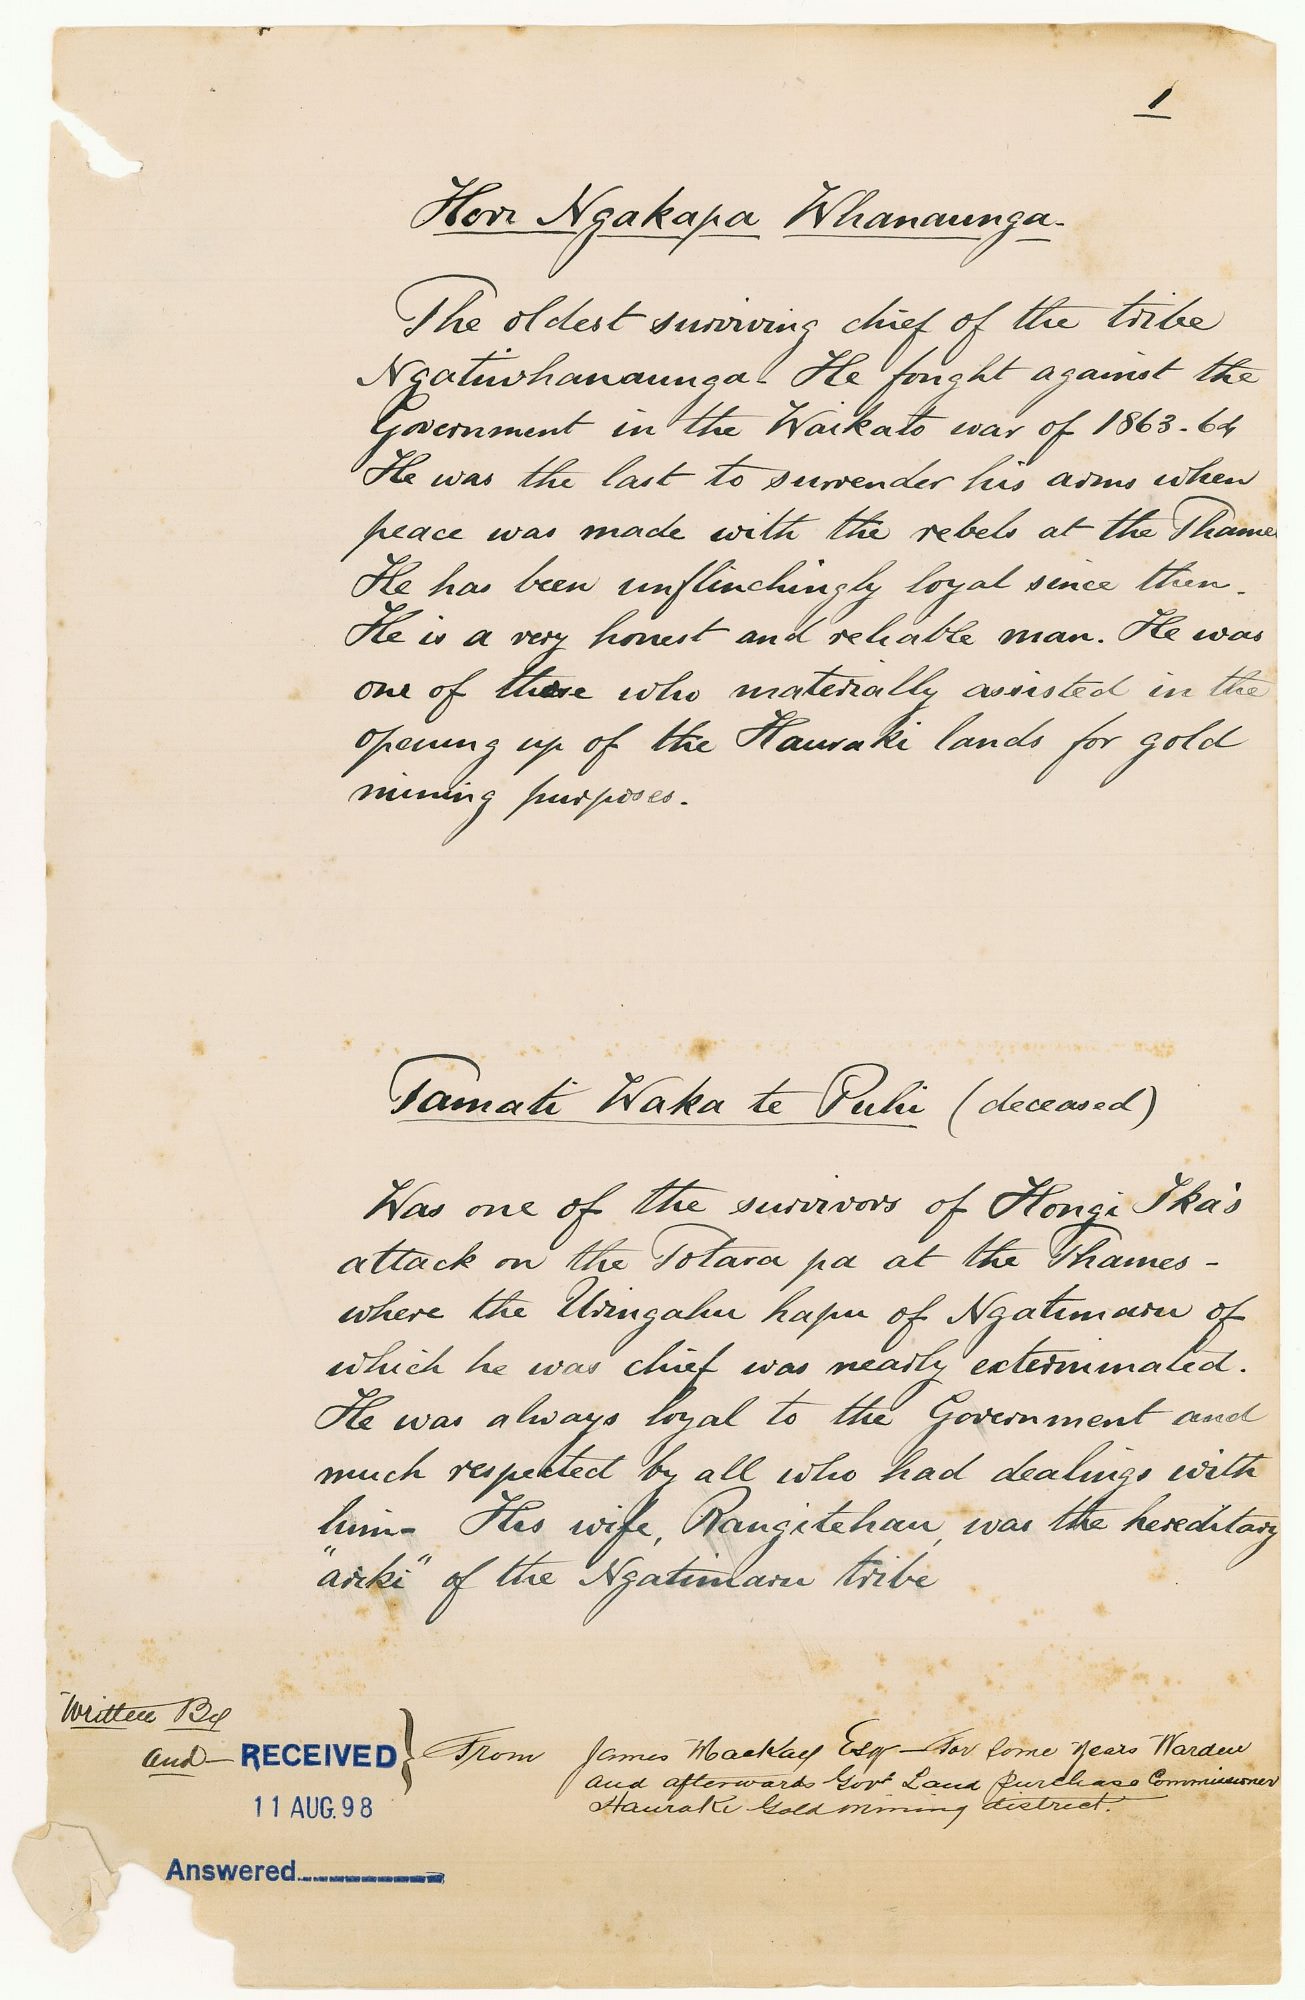 1
Hori Ngakapa Whanaunga.
The oldest surviving chief of the tribe
Ngatiwhanaunga. He fought against the
Government in the Waikato war of 1863-64
He was the last to surrender his arms when
peace was made with the rebels at the Thames
He has been unflinchingly loyal since then.
He is a very honest and reliable man. He was
one of those who materially assisted in the
opening up of the Hauraki lands for gold
mining purposes.
Tamati Waka te Puhi (deceased)
Was one of the survivors of Hongi Ika's
attack on the Totara pa at the Thames -
where the Uringahu hapu of Ngatimaru of
which he was chief was nearly exterminated.
He was always loyal to the Government and
much respected by all who had dealings with
him - His wife, Rangitehau, was the hereditary
"ariki" of the Ngatimaru tribe
Written By
and - RECEIVED } From James Mackay Esqr - For some years Warden
and afterwards Govt Land Purchase Commissioner
11 AUG. 98
Hauraki Gold mining district.
Answered